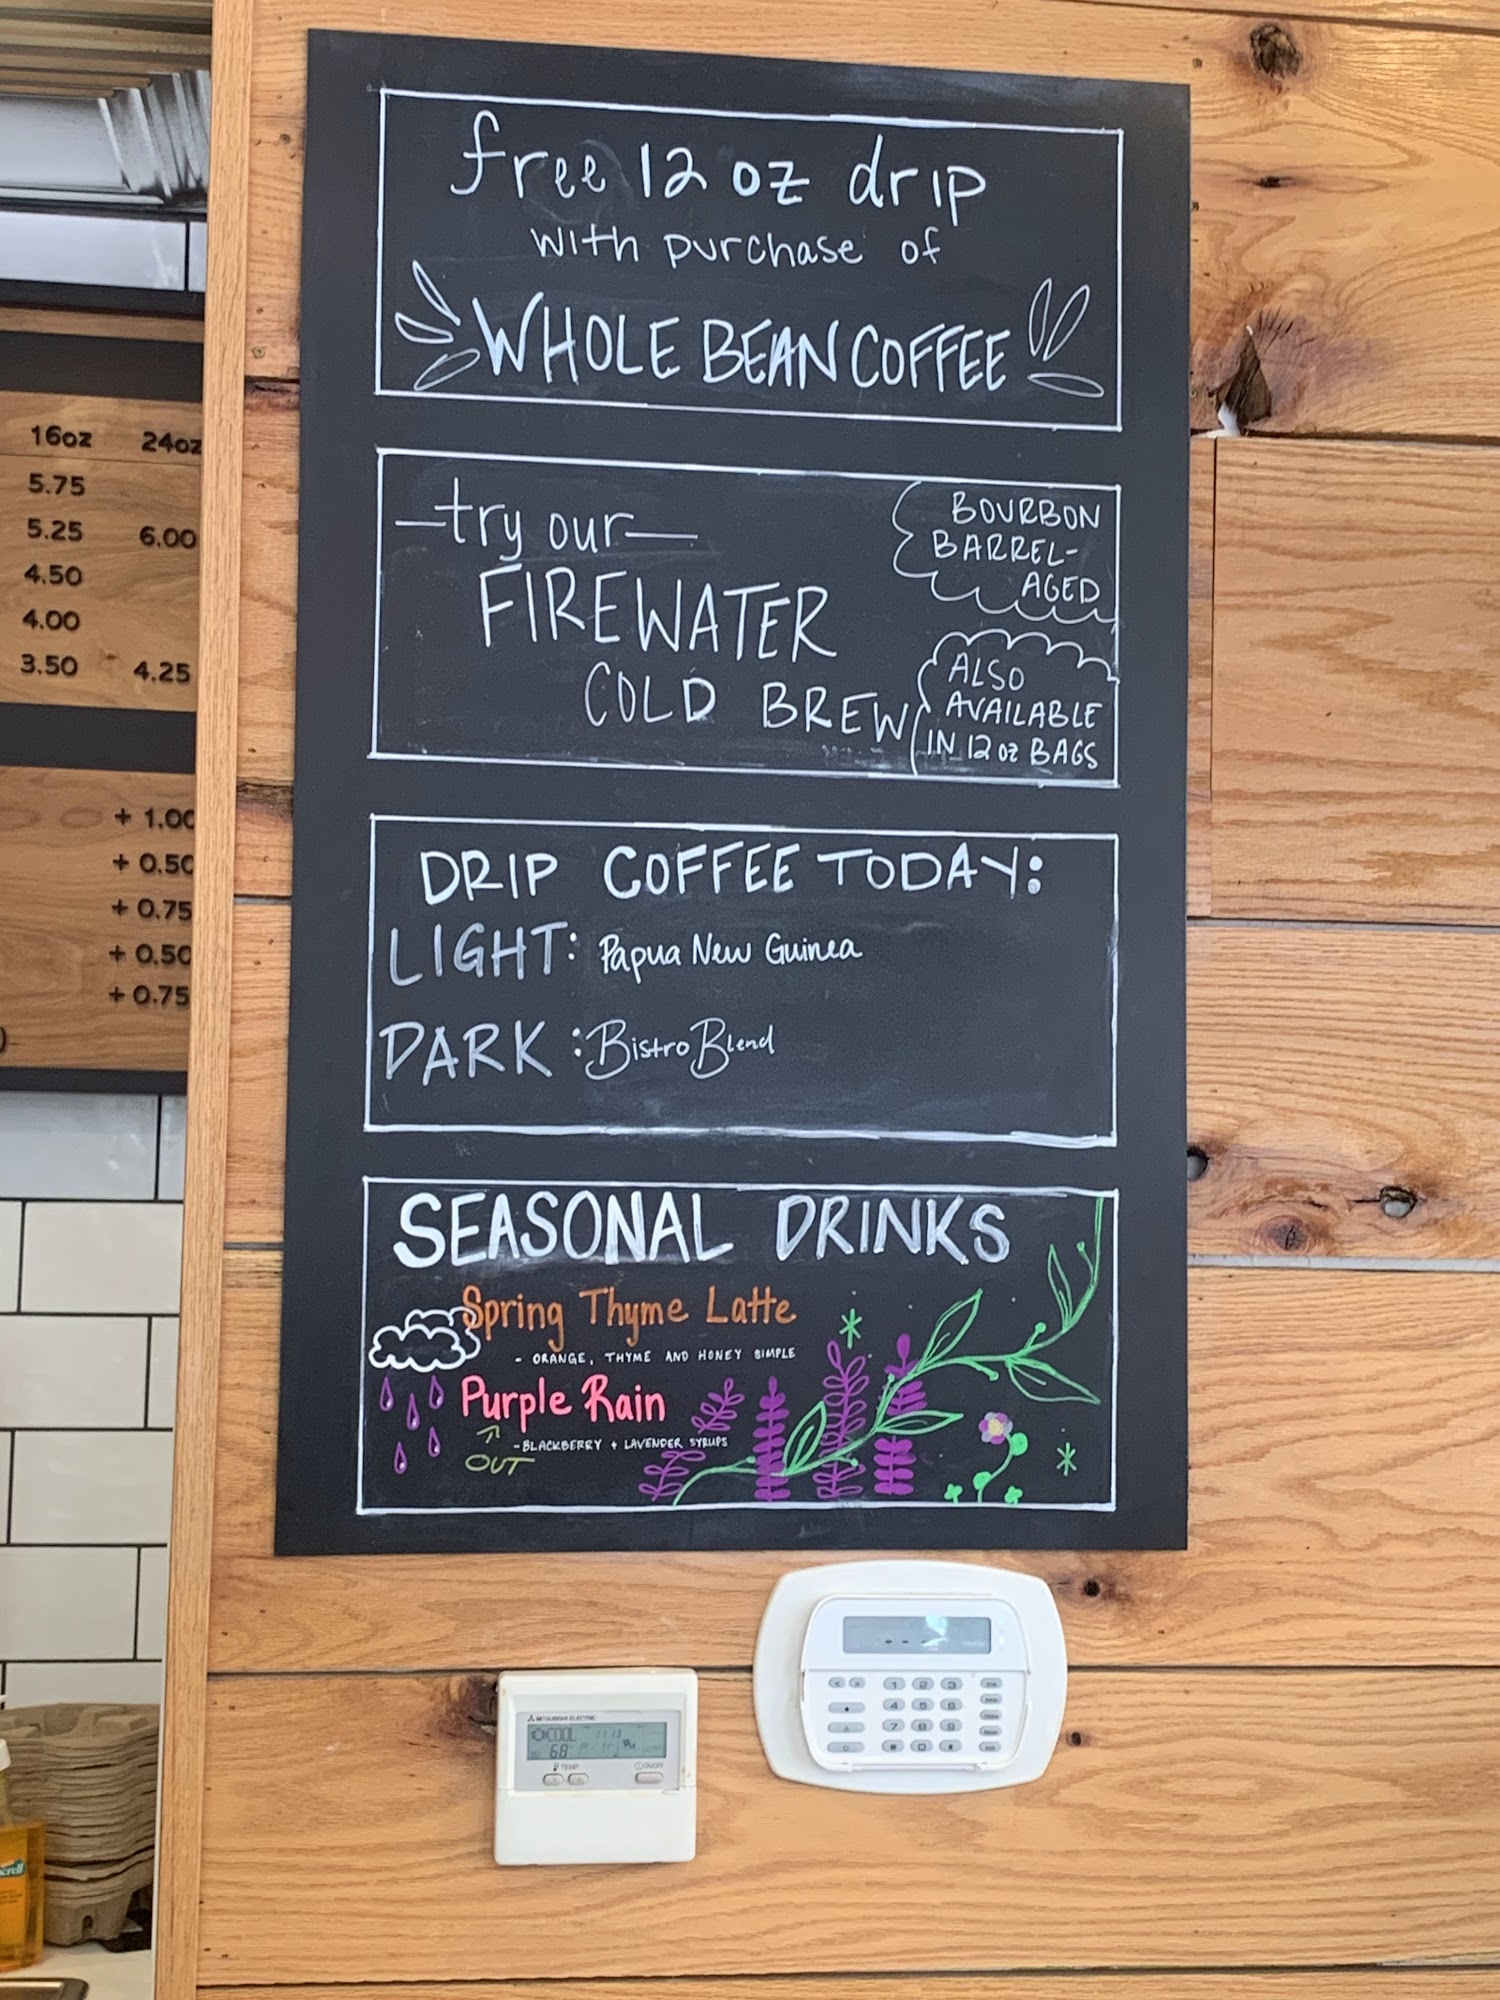 free 12 oz drip
with purchase of
WHOLE BEAN COFFEE
—try our—
FIREWATER
COLD BREW
BOURBON
BARREL-
AGED
ALSO
AVAILABLE
IN 12 oz BAGS
DRIP COFFEE TODAY:
LIGHT: Papua New Guinea
DARK: Bistro Blend
SEASONAL DRINKS
Spring Thyme Latte
- ORANGE, THYME AND HONEY SIMPLE
Purple Rain
- BLACKBERRY + LAVENDER SYRUPS
OUT
16oz 24oz
5.75
5.25 6.00
4.50
4.00
3.50 4.25
+ 1.00
+ 0.50
+ 0.75
+ 0.50
+ 0.75
)
MITSUBISHI ELECTRIC
COOL
68
TEMP
ON/OFF
1 2 3
4 5 6
7 8 9
* 0 #